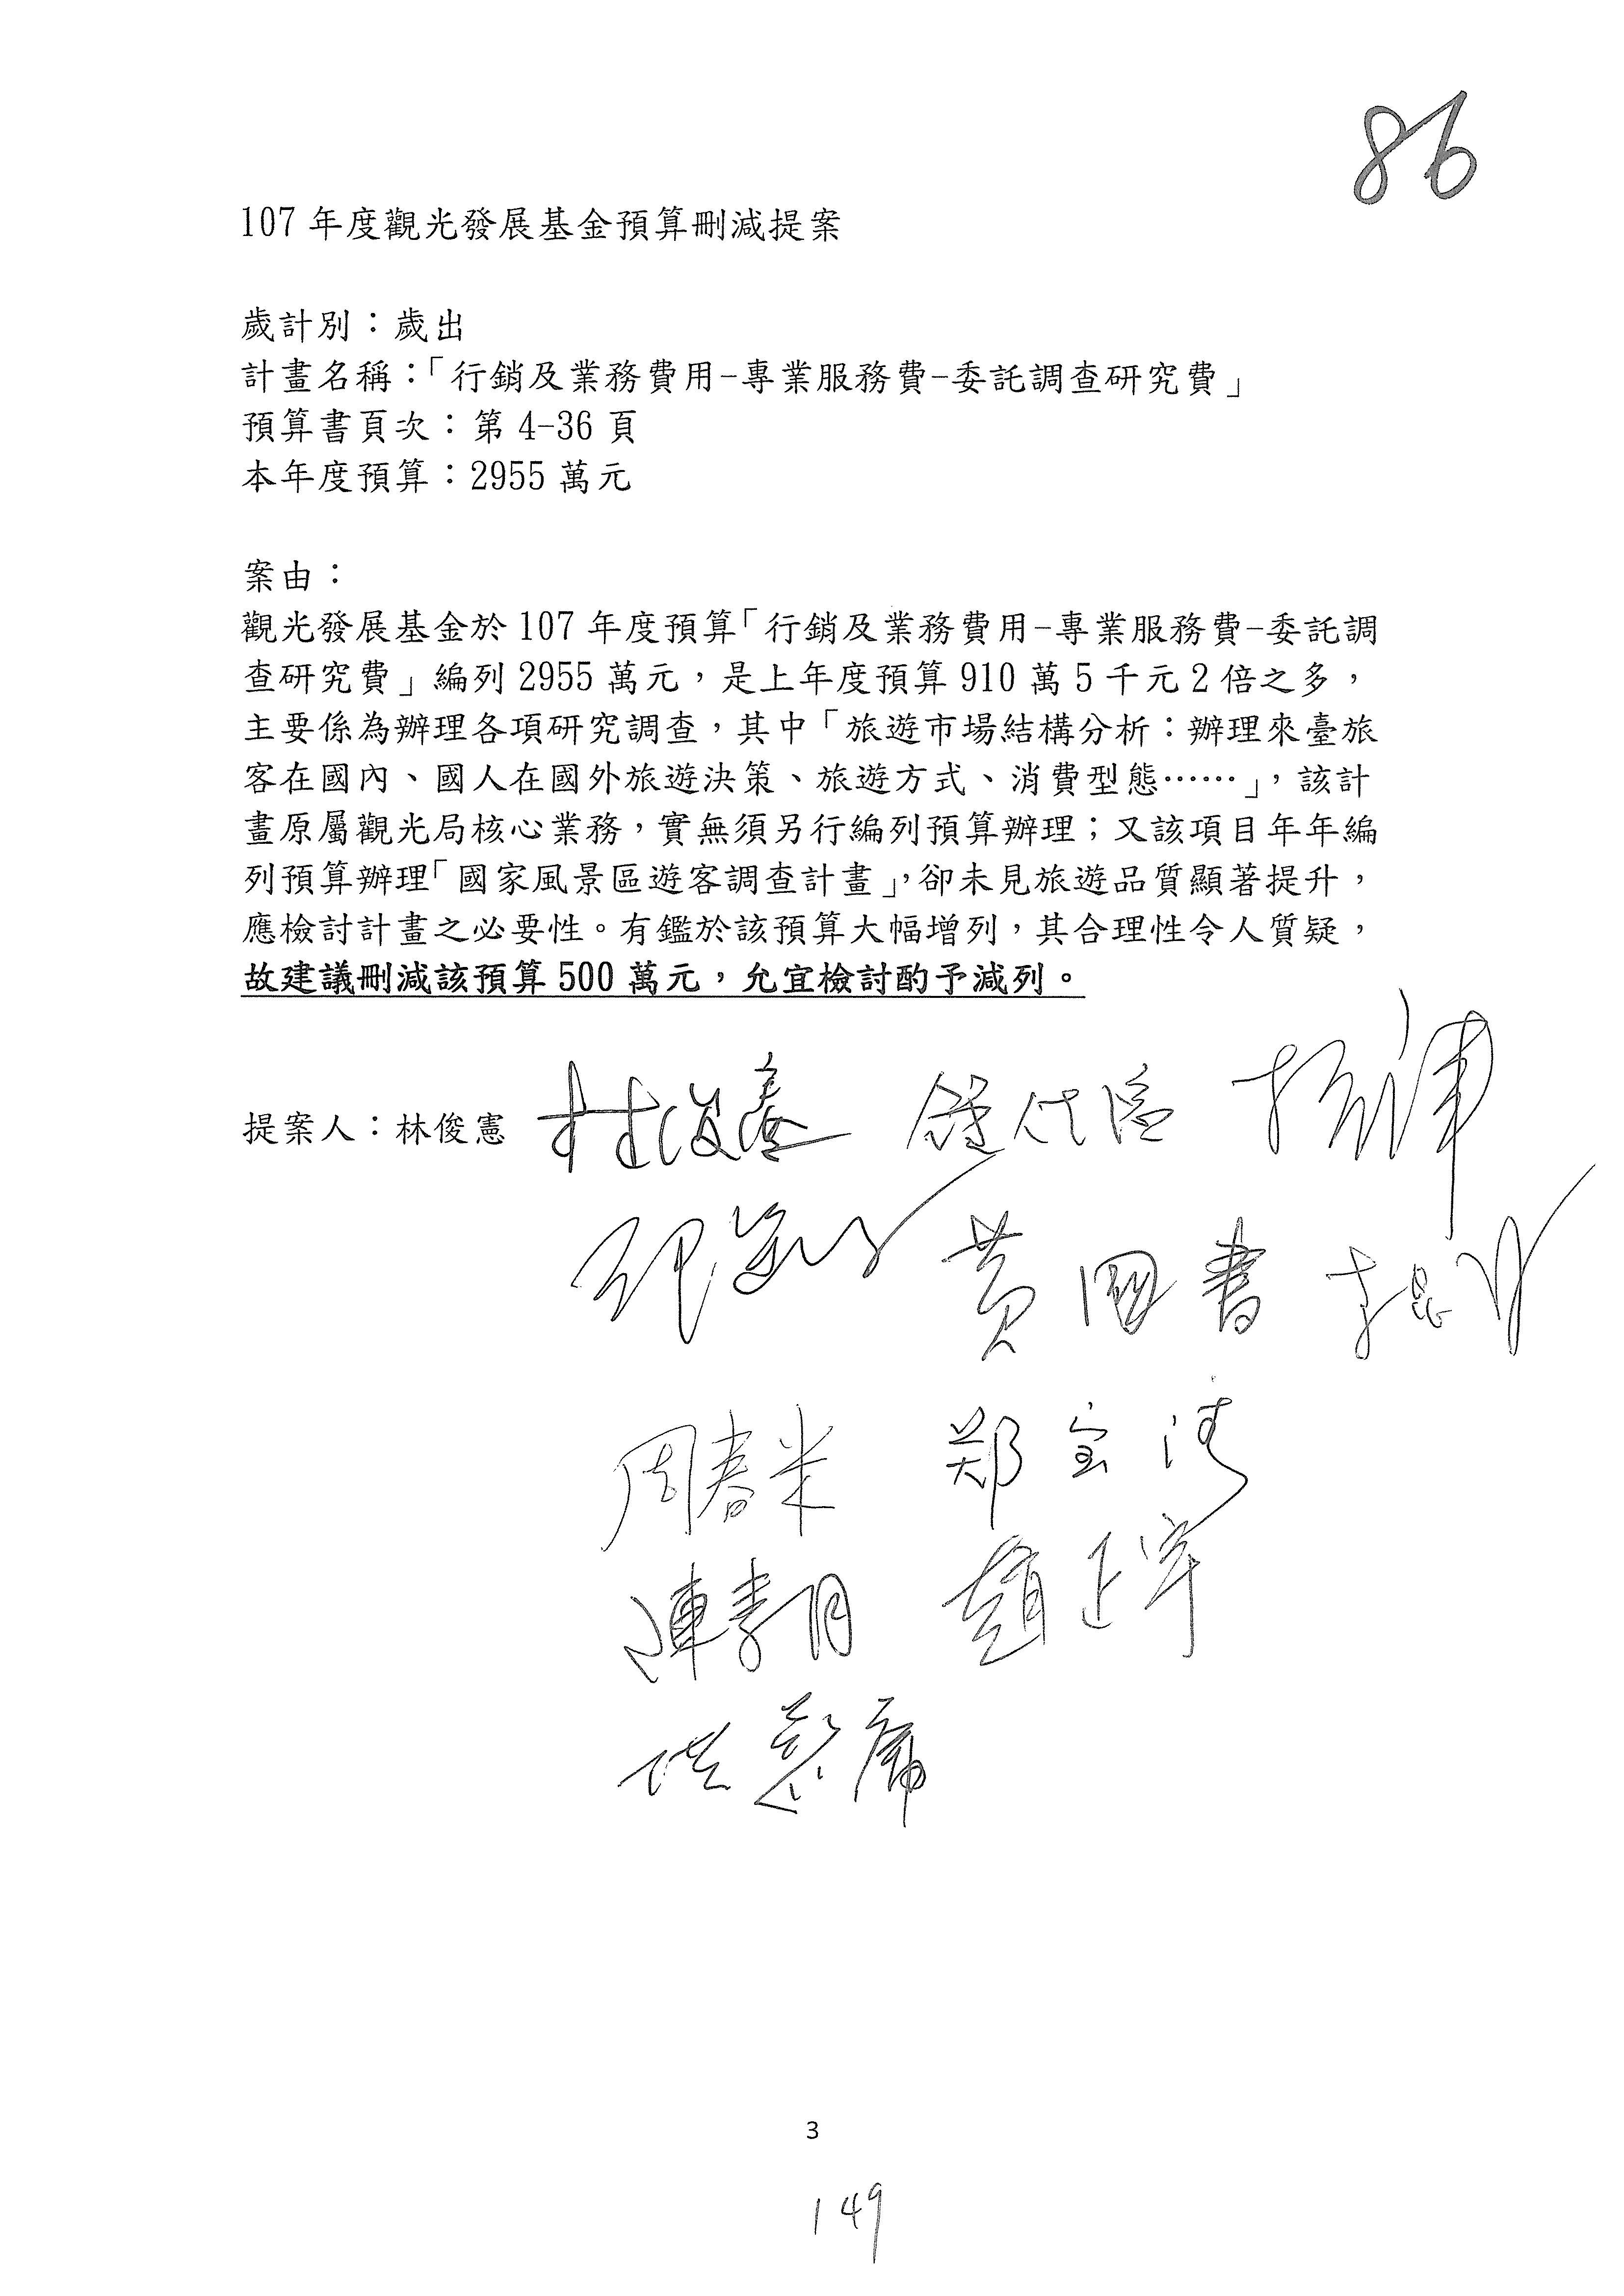 86
107 年度觀光發展基金預算刪減提案
歲計別：歲出
計畫名稱：「行銷及業務費用-專業服務費-委託調查研究費」
預算書頁次：第 4-36 頁
本年度預算：2955 萬元
案由：
觀光發展基金於 107 年度預算「行銷及業務費用-專業服務費-委託調
查研究費」編列 2955 萬元，是上年度預算 910 萬 5 千元 2 倍之多，
主要係為辦理各項研究調查，其中「旅遊市場結構分析：辦理來臺旅
客在國內、國人在國外旅遊決策、旅遊方式、消費型態……」，該計
畫原屬觀光局核心業務，實無須另行編列預算辦理；又該項目年年編
列預算辦理「國家風景區遊客調查計畫」，卻未見旅遊品質顯著提升，
應檢討計畫之必要性。有鑑於該預算大幅增列，其合理性令人質疑，
故建議刪減該預算 500 萬元，允宜檢討酌予減列。
提案人：林俊憲 林俊憲
黃國書 李昆澤
周春米 鄭宝清
陳素月 趙正宇
洪慈庸
3
149